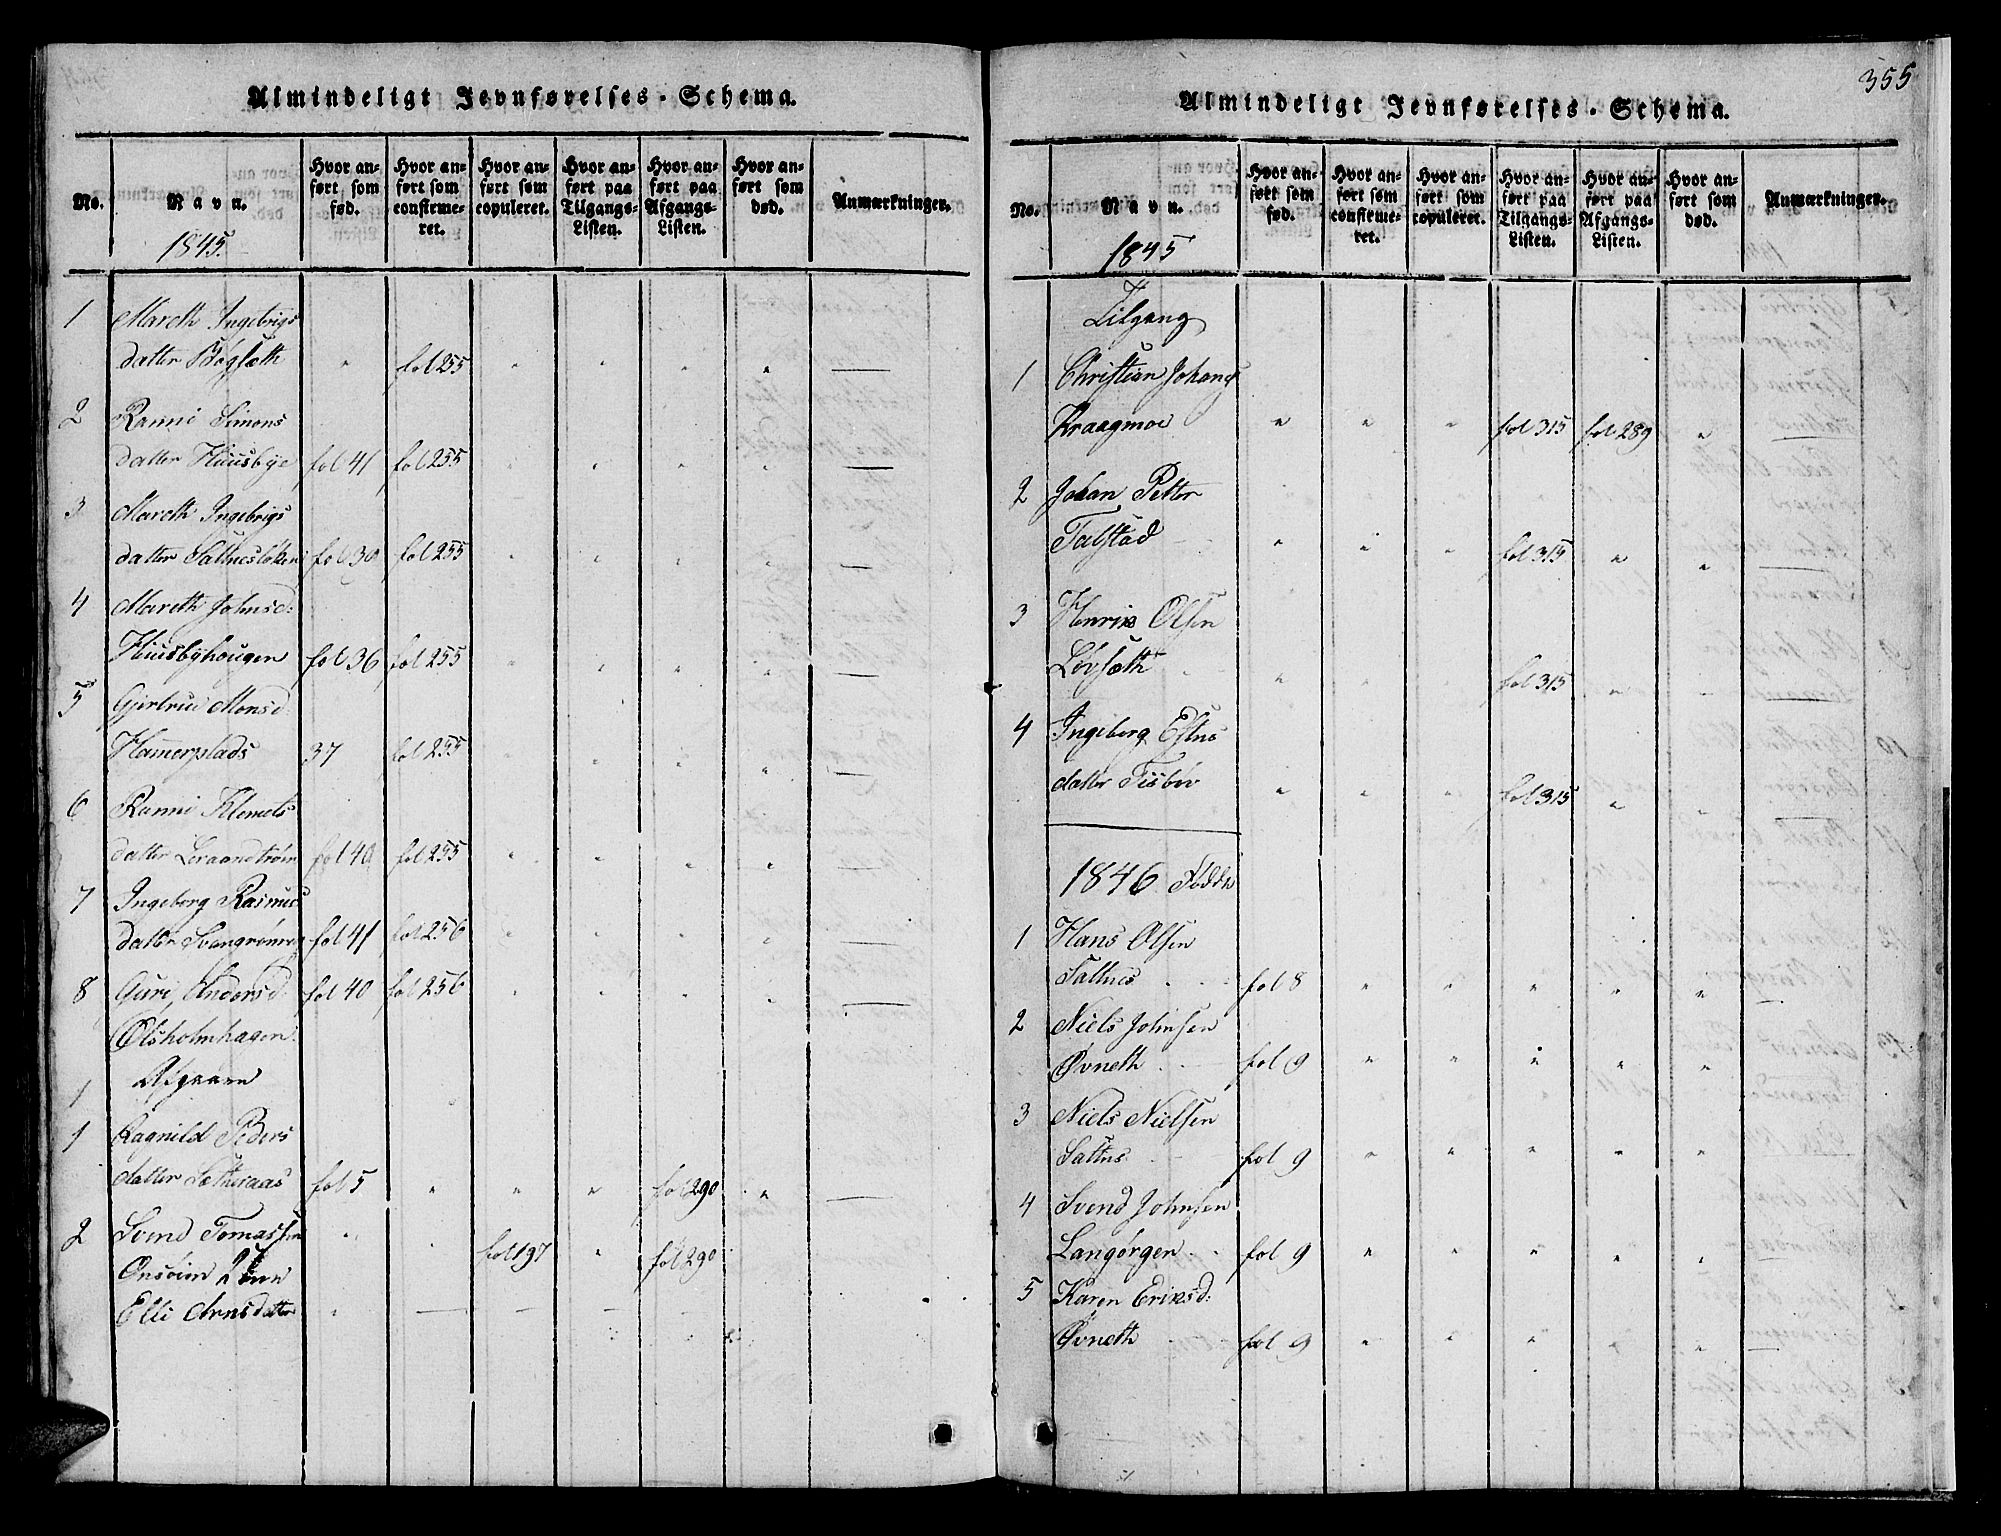 Almindeligt Jevnførelses-Schema.
No.
Navn.
1845.
Hvor anført som fød.
Hvor anført som confirmeret.
Hvor anført som copuleret.
Hvor anført paa Tilgangs-Listen.
Hvor anført paa Afgangs-Listen.
Hvor anført som død.
Anmærkninger.
1 Mareth Ingebrigs
datter Bøgsæth " fol 255 " " " "
2 Ranni Simons
datter Huusbye fol 41 fol 255 " " " "
3 Mareth Ingebrigs
datter Saltnesløken fol 30 fol 255 " " " "
4 Mareth Johnsd:
Huusbyhougen fol 36 fol 255 " " " "
5 Gjertrud Monsd
Hamerplads 37 fol 255 " " " "
6 Ranni Klemets
datter fol 40 fol 255 " " " "
7 Ingeborg Rasmus
datter fol 41 fol 256 " " " "
8 Guri Andersd: fol 40 fol 256 " " " "
Ølsholmhagen
1 Afgaaen
1 Ragnild Peders
datter Sætheraas fol 5 " " " fol 290 "
2 Svend Tomassen " " fol 197 " fol 290
Onsøien
Elli Arnsdatter "
355
Almindeligt Jevnførelses-Schema.
No.
Navn.
1845
Hvor anført som fød.
Hvor anført som confirmeret.
Hvor anført som copuleret.
Hvor anført paa Tilgangs-Listen.
Hvor anført paa Afgangs-Listen.
Hvor anført som død.
Anmærkninger.
Tilgang
1 Christian Johans
Kraagmoe " " " fol 315 fol 289 "
2 Johan Petter
Talstad " " " fol 315 " "
3 Henrik Olsen
Løvsæth " " " fol 315 " "
4 Ingeborg Estns
datter Tisbøv " " " fol 315 " "
1846 Fødde
1 Hans Olsen
Saltnes fol 8 " " " " "
2 Niels Johnsen
Øvneth fol 9 " " " " "
3 Niels Nielsen
Saltns fol 9 " " " " "
4 Svend Johnsen
Langørgen fol 9 " " " " "
5 Karen Eriksd:
Øvneth fol 9 " " " " "